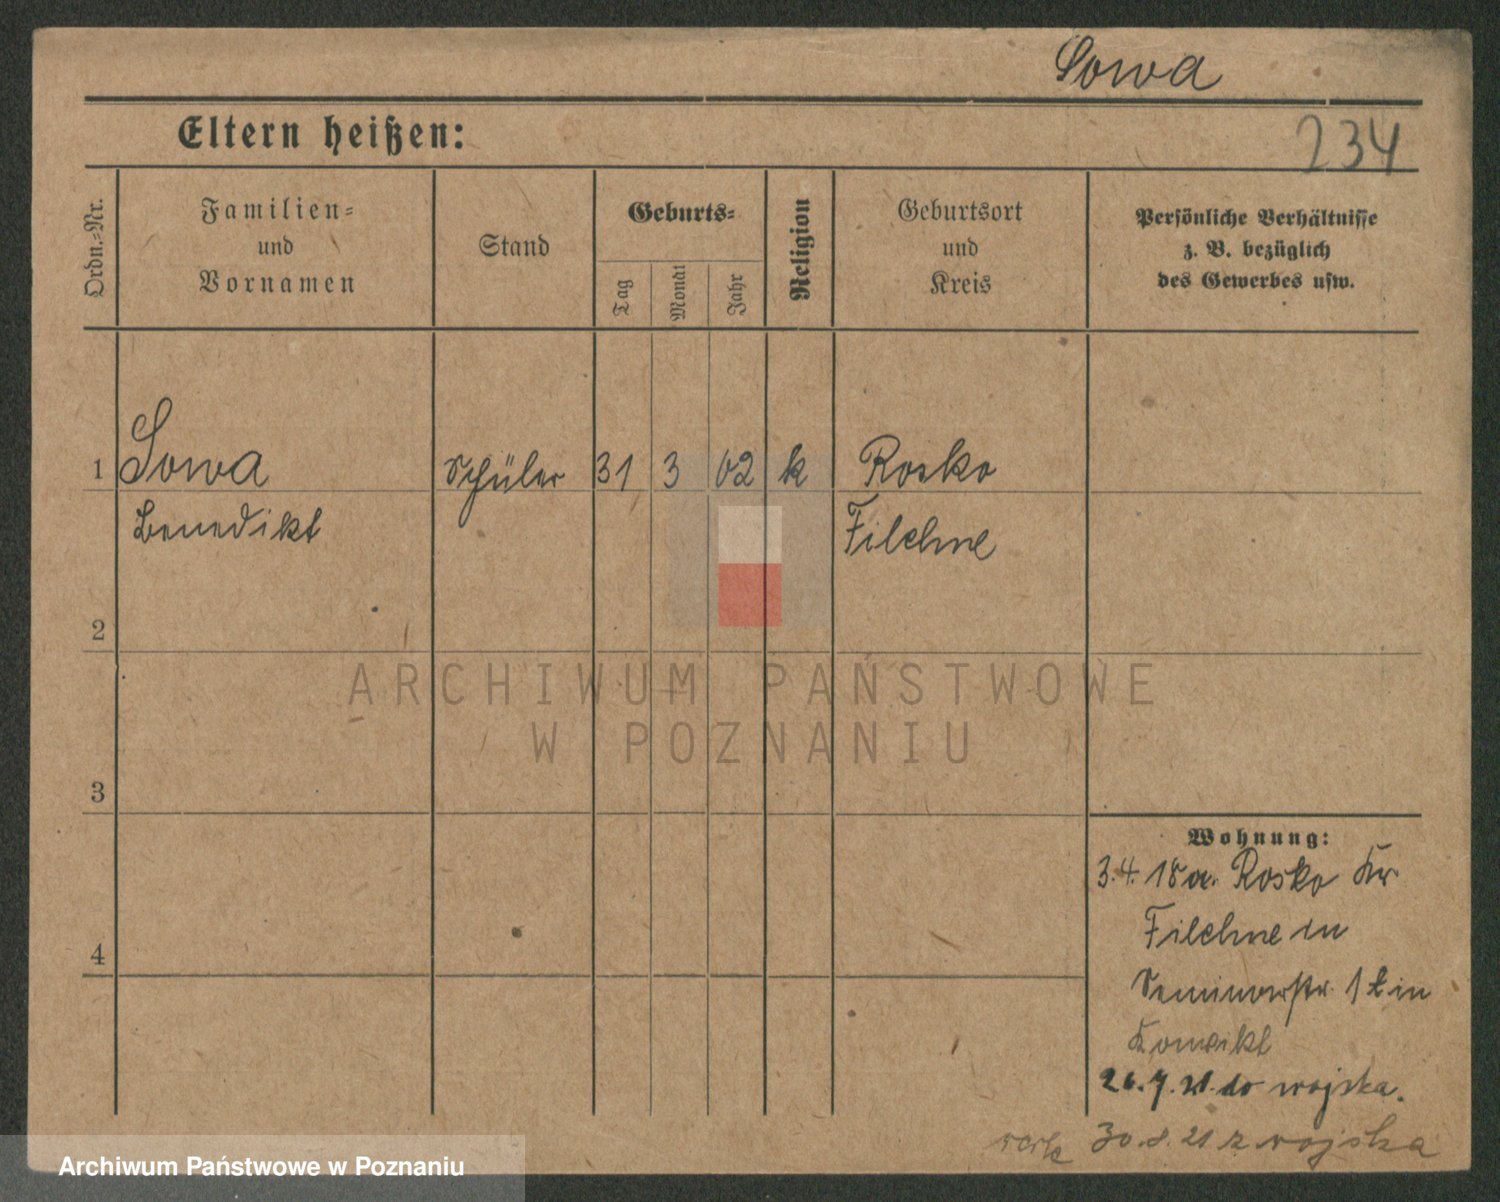 Sowa
Eltern heißen:
234
Ordn.-Nr.
Familien-
und
Vornamen
Stand
Geburts-
Tag
Monat
Jahr
Religion
Geburtsort
und
Kreis
Persönliche Verhältnisse
z. B. bezüglich
des Gewerbes usw.
1 Sowa Schüler 31 3 02 k Rosko
Benedikt Filehne
2
ARCHIWUM PAŃSTWOWE
W POZNANIU
3
Wohnung:
3.4.18 a. Rosko Kr.
Filehne in
4
Seminarstr. 1 in
Konvikt
26.7.21. do wojska.
30.8.21 z wojska
Archiwum Państwowe w Poznaniu